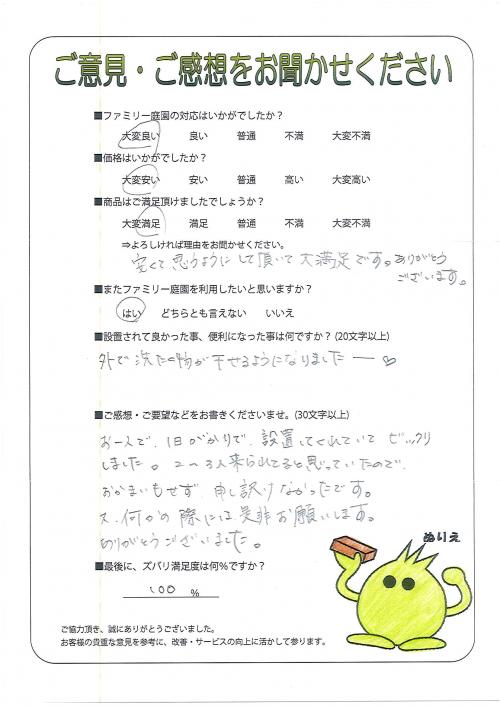 ご意見・ご感想をお聞かせください
■ファミリー庭園の対応はいかがでしたか？
大変良い 良い 普通 不満 大変不満
■価格はいかがでしたか？
大変安い 安い 普通 高い 大変高い
■商品はご満足頂けましたでしょうか？
大変満足 満足 普通 不満 大変不満
⇒よろしければ理由をお聞かせください。
安くて思うようにして頂いて大満足です。ありがとう
ございます。
■またファミリー庭園を利用したいと思いますか？
はい どちらとも言えない いいえ
■設置されて良かった事、便利になった事は何ですか？(20文字以上)
外で洗たく物が干せるようになりました ー ♡
■ご感想・ご要望などをお書きくださいませ。(30文字以上)
お一人で、1日がかりで、設置してくれていてビックリ
しました。2〜3人来られてると思っていたので、
おかまいもせず、申し訳けなかったです。
又、何かの際には是非お願いします。
ありがとうございました。
ぬりえ
■最後に、ズバリ満足度は何％ですか？
100 ％
ご協力頂き、誠にありがとうございました。
お客様の貴重な意見を参考に、改善・サービスの向上に活かして参ります。